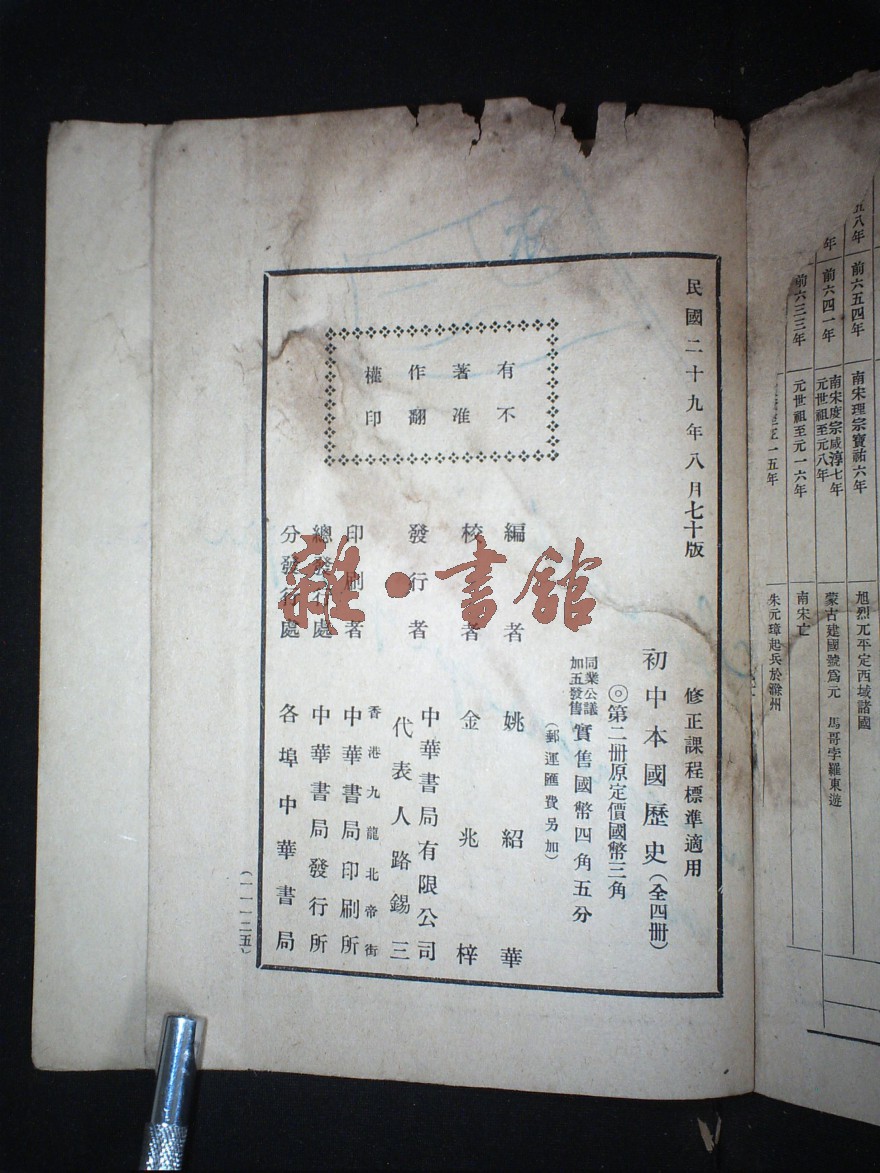 民國二十九年八月七十版
有著作權
不准翻印
修正課程標準適用
初中本國歷史（全四冊）
◎第二冊原定價國幣三角
同業公議
加五發售
實售國幣四角五分
（郵運匯費另加）
編者 姚紹華
校者 金兆梓
發行者 中華書局有限公司
代表人路錫三
印刷者 香港九龍北帝街
中華書局印刷所
總發行處 中華書局發行所
分發行處 各埠中華書局
（一一一二五）
雜·書館
五八年 前六五四年 南宋理宗寶祐六年 旭烈兀平定西域諸國
年 前六四一年 南宋度宗咸淳七年
元世祖至元八年 蒙古建國號為元 馬哥孛羅東遊
前六三三年 元世祖至元一六年 南宋亡
一五年 朱元璋起兵於滁州